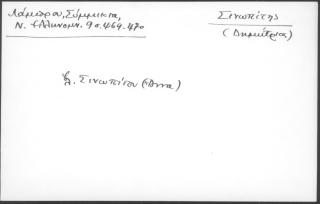 Λάμπρου, Σύμμικτα,
Ν. Ἑλληνομν. 9 σ. 469-470
Σινωπίτης
(Δημήτριος)
βλ. Σινωπίτου (Ἄννα)